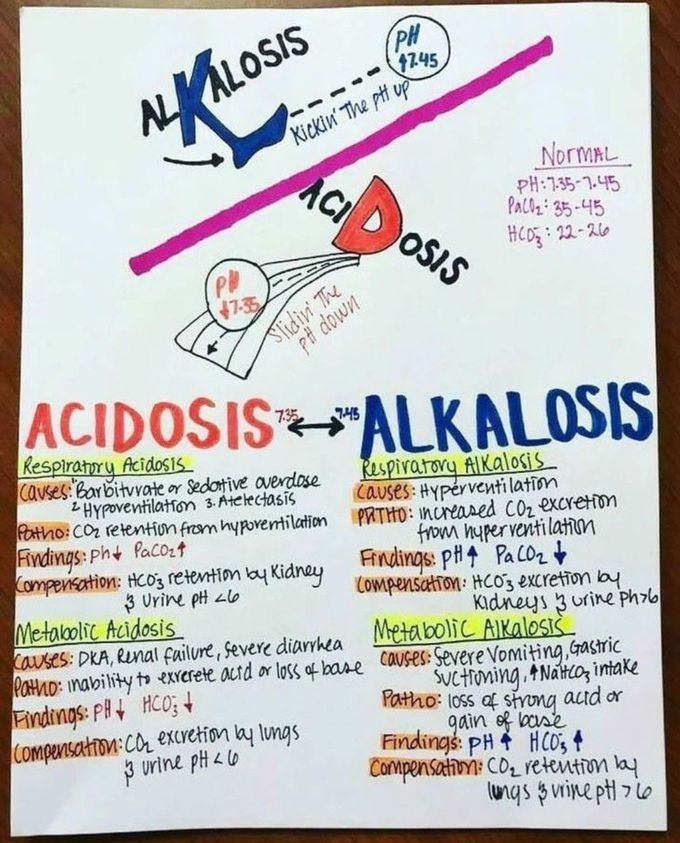 ALKALOSIS
PH
↑7.45
Kickin' The pH up
NORMAL
PH: 7.35-7.45
PaCO2: 35-45
HCO3-: 22-26
ACIDOSIS
PH
↓7.35
Slidin' The
pH down
ACIDOSIS 7.35 ↔ 7.45 ALKALOSIS
Respiratory Acidosis
Causes: 1. Barbiturate or Sedative overdose
2. Hypoventilation 3. Atelectasis
Patho: CO2 retention from hypoventilation
Findings: Ph↓ PaCO2↑
Compensation: HCO3- retention by Kidney
& Urine pH <6
Metabolic Acidosis
Causes: DKA, Renal failure, Severe diarrhea
Patho: inability to exrerete acid or loss of base
Findings: PH↓ HCO3-↓
Compensation: CO2 excretion by lungs
& urine pH <6
Respiratory Alkalosis
Causes: Hyperventilation
PATHO: increased CO2 excretion
from hyperventilation
Findings: pH↑ PaCO2↓
Compensation: HCO3- excretion by
Kidneys & urine Ph>6
Metabolic Alkalosis
Causes: Severe Vomiting, Gastric
Suctioning, ↑NaHCO3 intake
Patho: loss of strong acid or
gain of base
Findings: pH↑ HCO3-↑
Compensation: CO2 retention by
lungs & urine pH >6